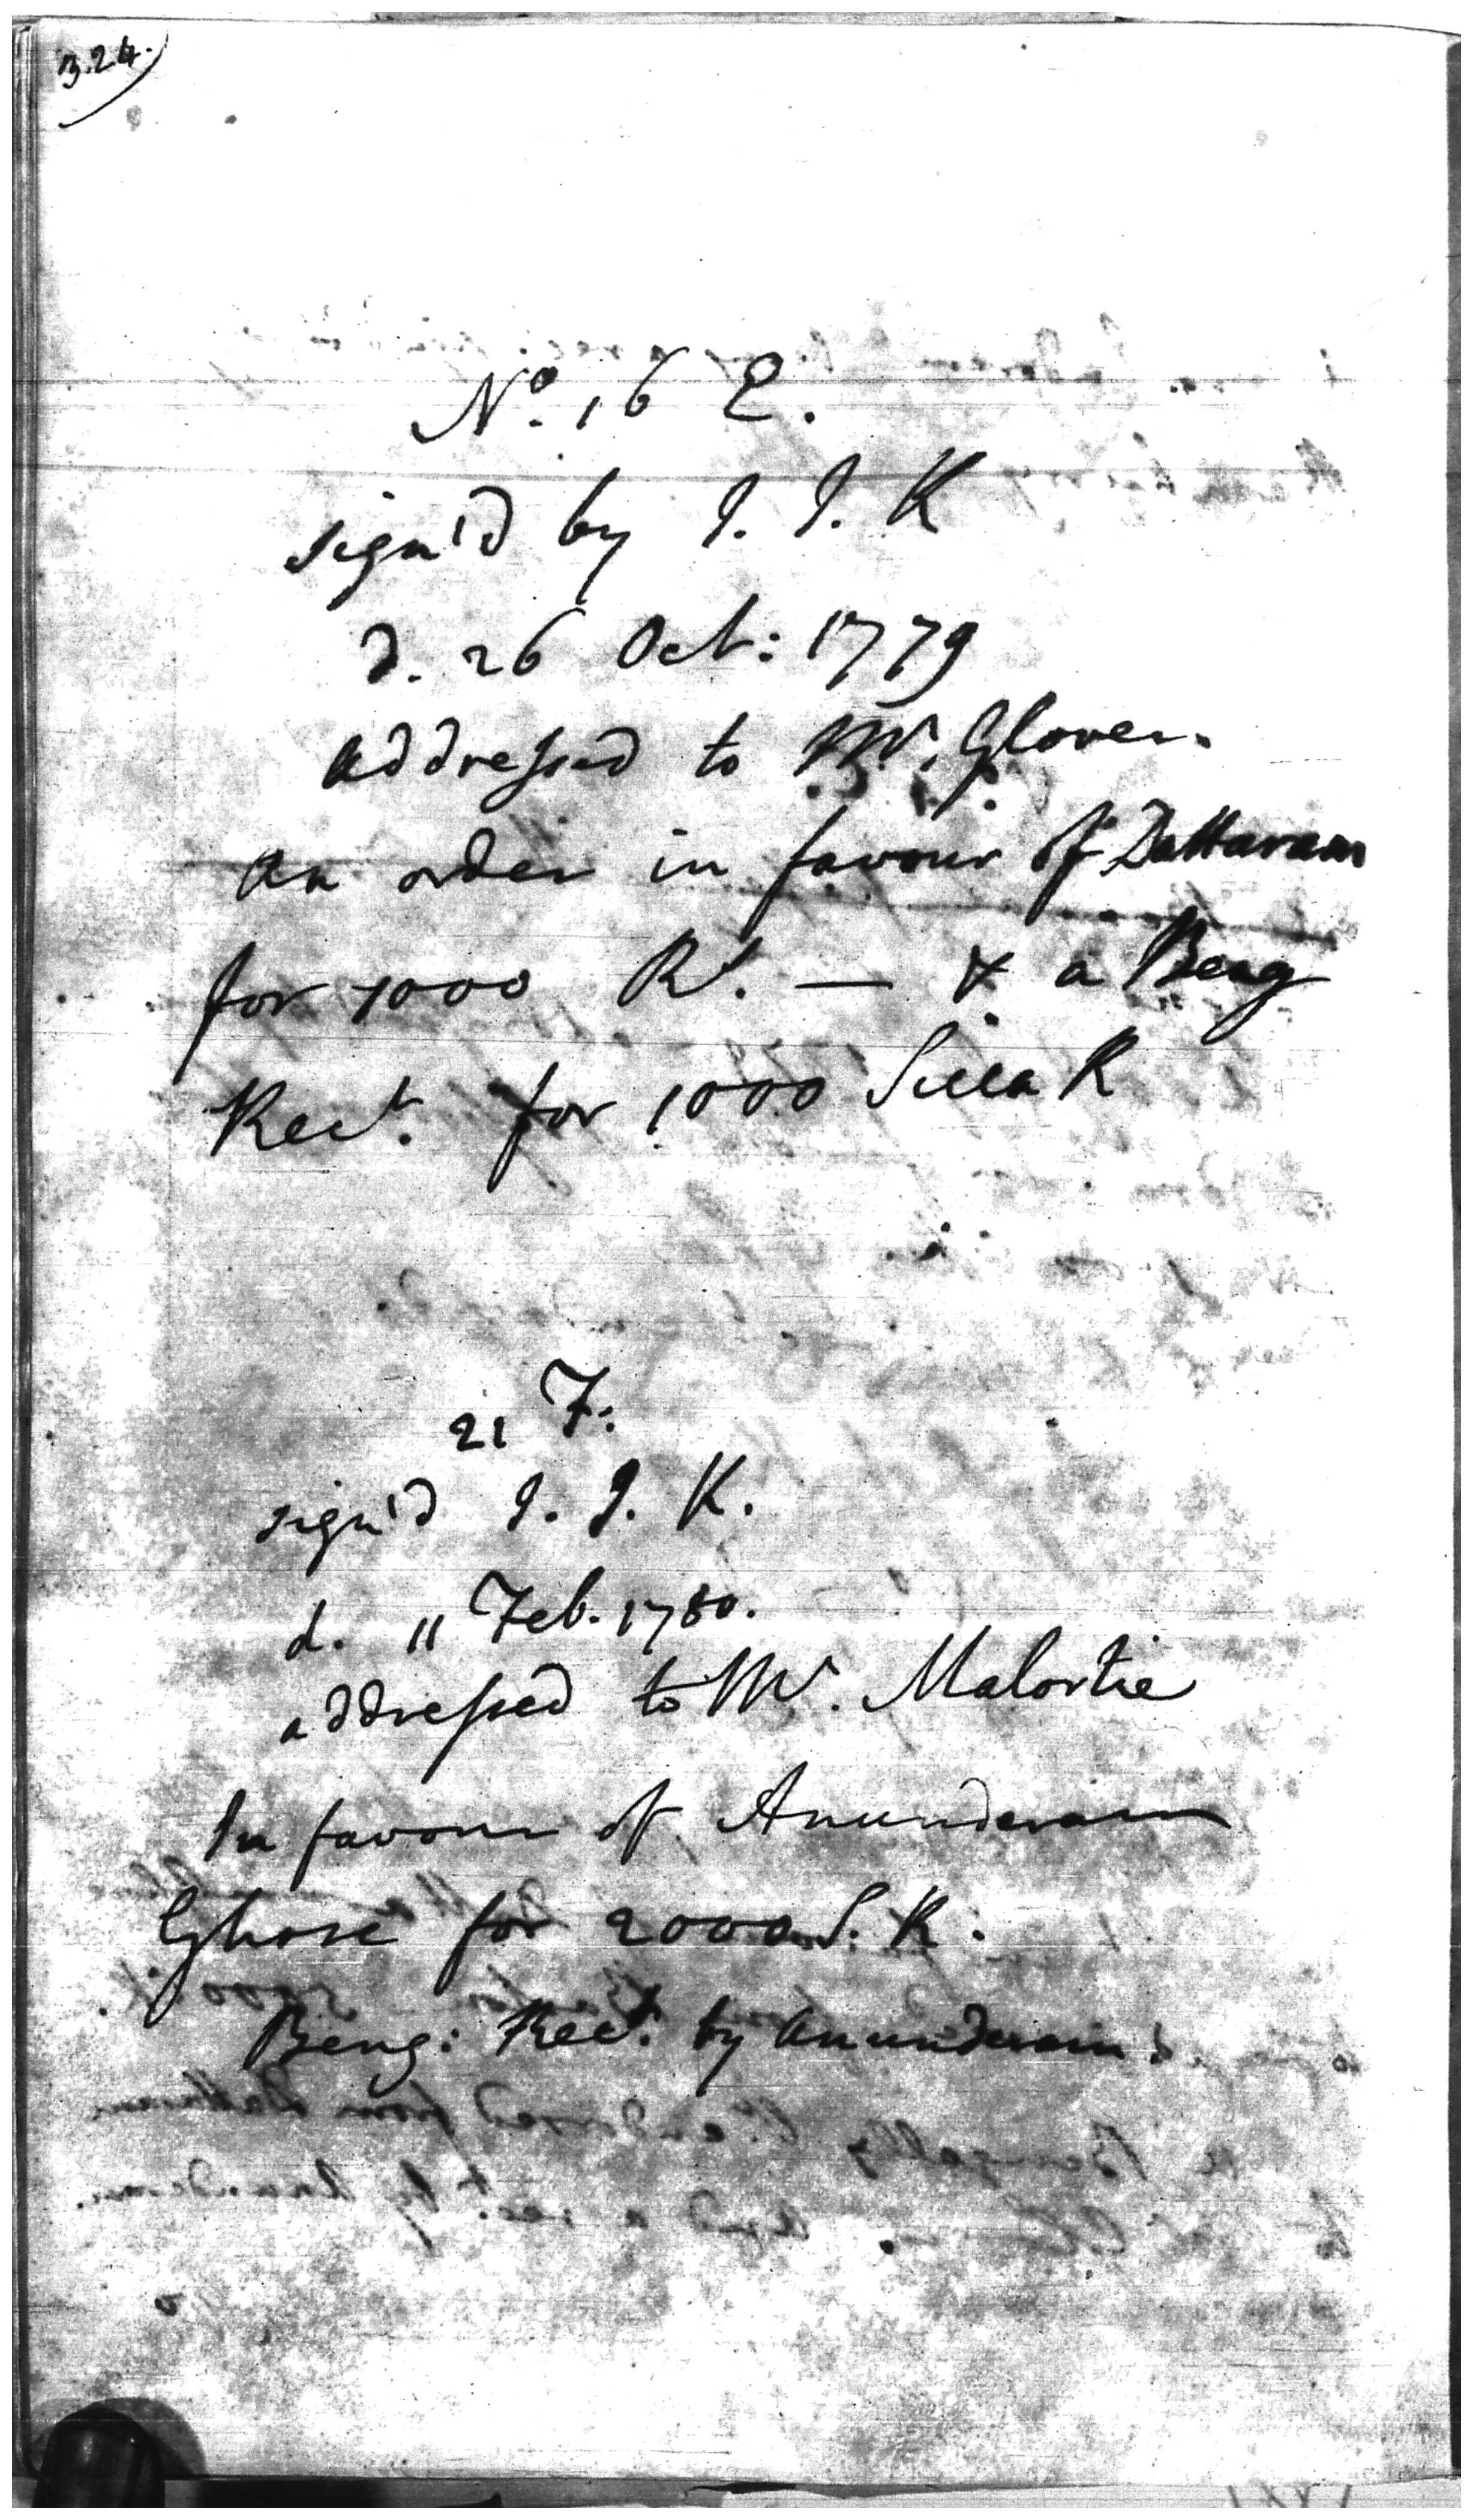 324.
No. 16 E.
sign'd by J. J. K
d. 26 Oct: 1779
addressed to Mr. Glover.
An order in favour of Dattaram
for 1000 Rs. — & a Beng
Rect. for 1000 Sicca R
21 F:
sign'd J. J. K.
d. 11 Feb. 1780.
addressed to Mr. Malortie
In favour of Anunderam
Ghose for 2000 S. R.
Beng: Rect. by Anunderam: